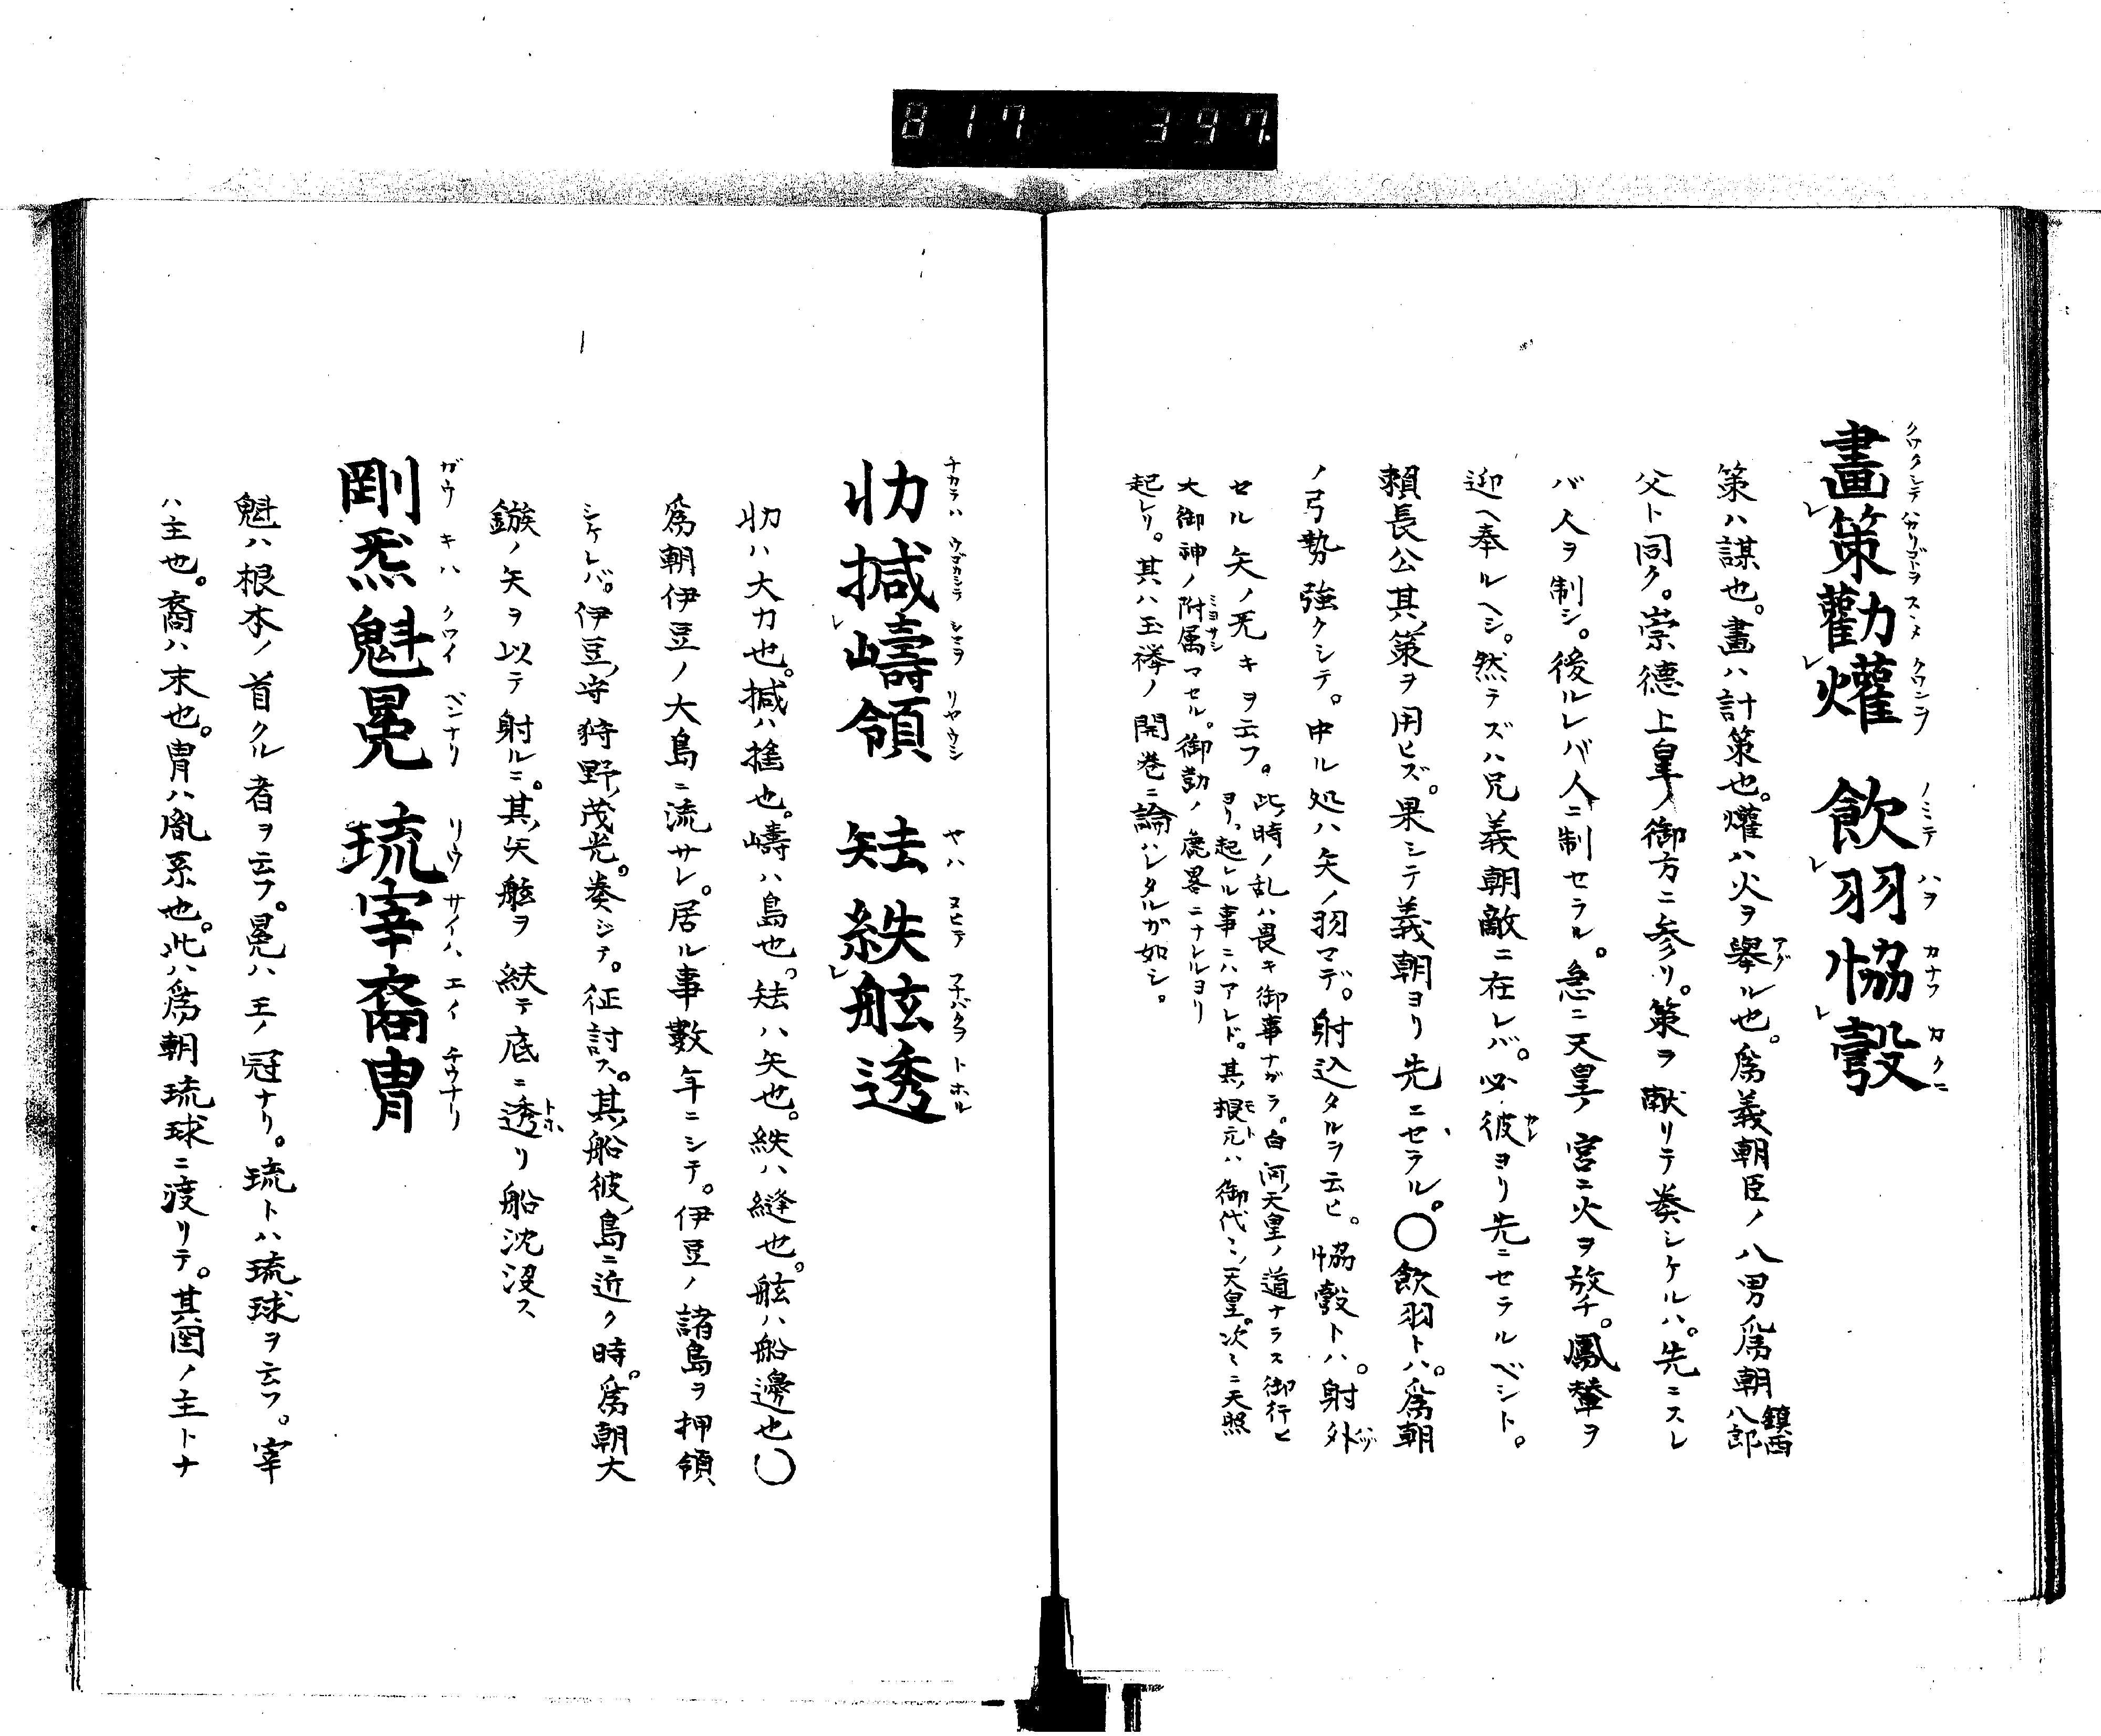 817 397.
畫策勸爟 飲羽恊彀
クワクシテハカリゴトヲ スヽメ クワンヲ ノミテ ハヲ カナフ カクニ
策ハ謀也。畫ハ計策也。爟ハ火ヲ舉ル也。爲義朝臣ノ八男爲朝鎮西八郎
父ト同ク。崇德上皇ノ御方ニ参リ。策ヲ献リテ奏シケルハ。先ニスレ
バ人ヲ制シ。後ルレバ人ニ制セラル。急ニ天皇ノ宮ニ火ヲ放チ。鳳輦ヲ
迎ヘ奉ルヘシ。然ラズハ兄義朝敵ニ在レバ。必彼ヨリ先ニセラルベシト。
賴長公其策ヲ用ヒズ。果シテ義朝ヨリ先ニセラル。〇飲羽トハ。爲朝
ノ弓勢強クシテ。中ル処ハ矢ノ羽マデ。射込タルヲ云ヒ。恊彀トハ。射外
セル矢ノ旡キヲ云フ。此時ノ乱ハ畏キ御事ナガラ。白河天皇ノ道ナラス御行ヒ
ヨリ。起レル事ニハアレド。其根元ハ御代ミノ天皇。次ミニ天照
大御神ノ附属マセル。御勅ノ麁畧ニナレルヨリ
起レリ。其ハ玉襷ノ開巻ニ論ハレタルガ如シ。
㔙撼嶹領 䂠紩舷透
チカラハ ウゴカシテ シマヲ リヤウシ ヤハ ヌヒテ フナバタヲ トホル
㔙ハ大力也。撼ハ搖也。嶹ハ島也。䂠ハ矢也。紩ハ縫也。舷ハ船邊也〇
爲朝伊豆ノ大島ニ流サレ。居ル事數年ニシテ。伊豆ノ諸島ヲ押領
シケレバ。伊豆守狩野茂光。奏シテ。征討ス。其船彼島ニ近ク時。爲朝大
鏃ノ矢ヲ以テ射ルニ。其矢舷ヲ紩テ底ニ透リ船沈没ス
剛炁魁冕 琉宰裔冑
ガウ キハ クワイ ベンナリ リウ サイハ エイ チウナリ
魁ハ根本ノ首クル者ヲ云フ。冕ハ王ノ冠ナリ。琉トハ琉球ヲ云フ。宰
ハ主也。裔ハ末也。冑ハ胤系也。此ハ爲朝琉球ニ渡リテ。其国ノ主トナ